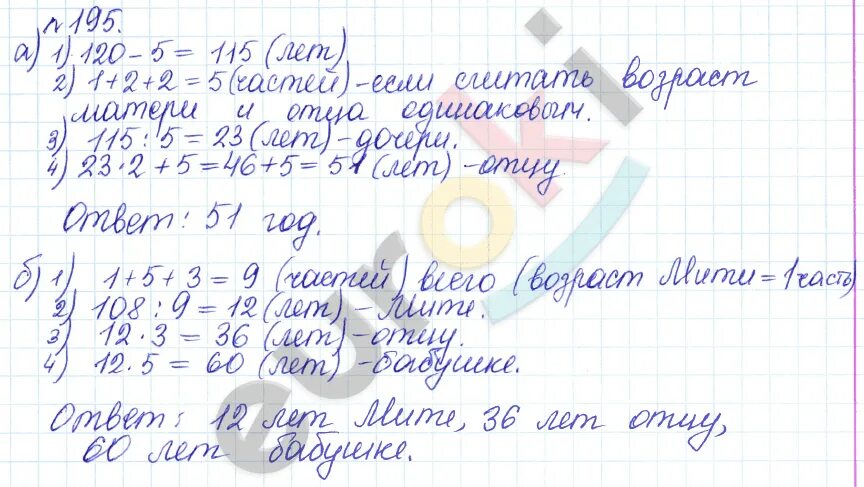 №195.
а) 1) 120 - 5 = 115 (лет)
2) 1+2+2 = 5 (частей) - если считать возраст
матери и отца одинаковым.
3) 115 : 5 = 23 (лет) - дочери.
4) 23 · 2 + 5 = 46 + 5 = 51 (лет) - отцу.
Ответ: 51 год.
б) 1) 1+5+3 = 9 (частей) всего (возраст Мити = 1 часть)
2) 108 : 9 = 12 (лет) - Мите.
3) 12 · 3 = 36 (лет) - отцу.
4) 12 · 5 = 60 (лет) - бабушке.
Ответ: 12 лет Мите, 36 лет отцу,
60 лет бабушке.
euroki